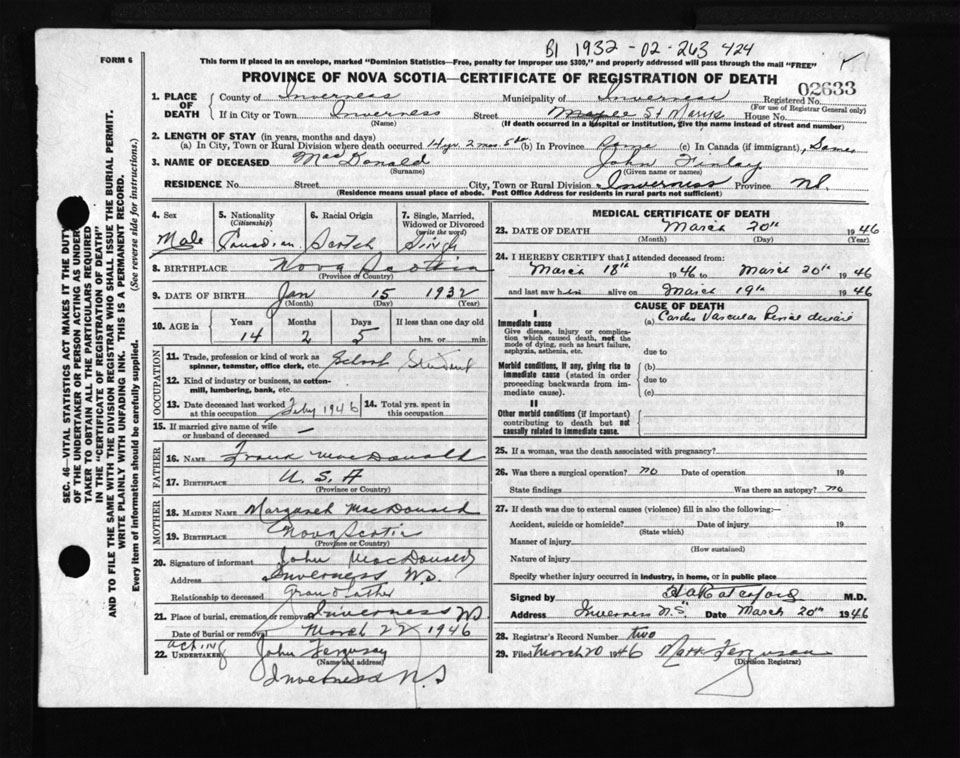 B1 1932-02-263 424
FORM 6
This form if placed in an envelope, marked "Dominion Statistics—Free, penalty for improper use $300," and properly addressed will pass through the mail "FREE"
PROVINCE OF NOVA SCOTIA—CERTIFICATE OF REGISTRATION OF DEATH
02633
1. PLACE OF DEATH County of Inverness Municipality of Inverness Registered No.
(For use of Registrar General only)
If in City or Town Inverness Street Maple St. Marys House No.
(Name) (If death occurred in a hospital or institution, give the name instead of street and number)
2. LENGTH OF STAY (in years, months and days)
(a) In City, Town or Rural Division where death occurred 14 yr. 2 mos. 5 ds (b) In Province Same (c) In Canada (if immigrant), Same
3. NAME OF DECEASED MacDonald John Finlay
(Surname) (Given name or names)
RESIDENCE No. Street City, Town or Rural Division Inverness Province NS.
(Residence means usual place of abode. Post Office Address for residents in rural parts not sufficient)
SEC. 46—VITAL STATISTICS ACT MAKES IT THE DUTY
OF THE UNDERTAKER OR PERSON ACTING AS UNDER
TAKER TO OBTAIN ALL THE PARTICULARS REQUIRED
IN THE "CERTIFICATE OF REGISTRATION OF DEATH"
AND TO FILE THE SAME WITH THE DIVISION REGISTRAR WHO SHALL ISSUE THE BURIAL PERMIT.
WRITE PLAINLY WITH UNFADING INK. THIS IS A PERMANENT RECORD.
Every item of information should be carefully supplied. (See reverse side for instructions.)
4. Sex Male
5. Nationality (Citizenship) Canadian
6. Racial Origin Scotch
7. Single, Married, Widowed or Divorced (write the word) Single
8. BIRTHPLACE Nova Scotia
(Province or Country)
9. DATE OF BIRTH Jan 15 1932
(Month) (Day) (Year)
10. AGE in Years Months Days If less than one day old
14 2 5 hrs. or min.
OCCUPATION
11. Trade, profession or kind of work as spinner, teamster, office clerk, etc. School Student
12. Kind of industry or business, as cotton-mill, lumbering, bank, etc.
13. Date deceased last worked at this occupation Feby 1946 14. Total yrs. spent in this occupation
15. If married give name of wife or husband of deceased —
FATHER
16. NAME Frank MacDonald
17. BIRTHPLACE U.S.A
(Province or Country)
MOTHER
18. MAIDEN NAME Margaret MacDonald
19. BIRTHPLACE Nova Scotia
(Province or Country)
20. Signature of informant John MacDonald
Address Inverness N.S
Relationship to deceased Grandfather
21. Place of burial, cremation or removal Inverness NS.
Date of Burial or removal March 22 1946
acting
22. UNDERTAKER John Ferguson
(Name and address)
Inverness N.S
MEDICAL CERTIFICATE OF DEATH
23. DATE OF DEATH March 20th 1946
(Month) (Day) (Year)
24. I HEREBY CERTIFY that I attended deceased from:
March 18th 1946 to March 20th 1946
and last saw him alive on March 19th 1946
CAUSE OF DEATH
I
Immediate cause (a) Cardio Vascular Renal disease
Give disease, injury or complication which caused death, not the mode of dying, such as heart failure, asphyxia, asthenia, etc. due to
Morbid conditions, if any, giving rise to immediate cause (stated in order proceeding backwards from immediate cause). (b)
due to
(c)
II
Other morbid conditions (if important) contributing to death but not causally related to immediate cause.
25. If a woman, was the death associated with pregnancy?
26. Was there a surgical operation? no Date of operation 19
State findings Was there an autopsy? no
27. If death was due to external causes (violence) fill in also the following:—
Accident, suicide or homicide? Date of injury 19
(State which)
Manner of injury
(How sustained)
Nature of injury
Specify whether injury occurred in industry, in home, or in public place
Signed by M.D.
Address Inverness N.S. Date March 20th 1946
28. Registrar's Record Number two
29. Filed March 20 1946 Matt Ferguson
(Division Registrar)